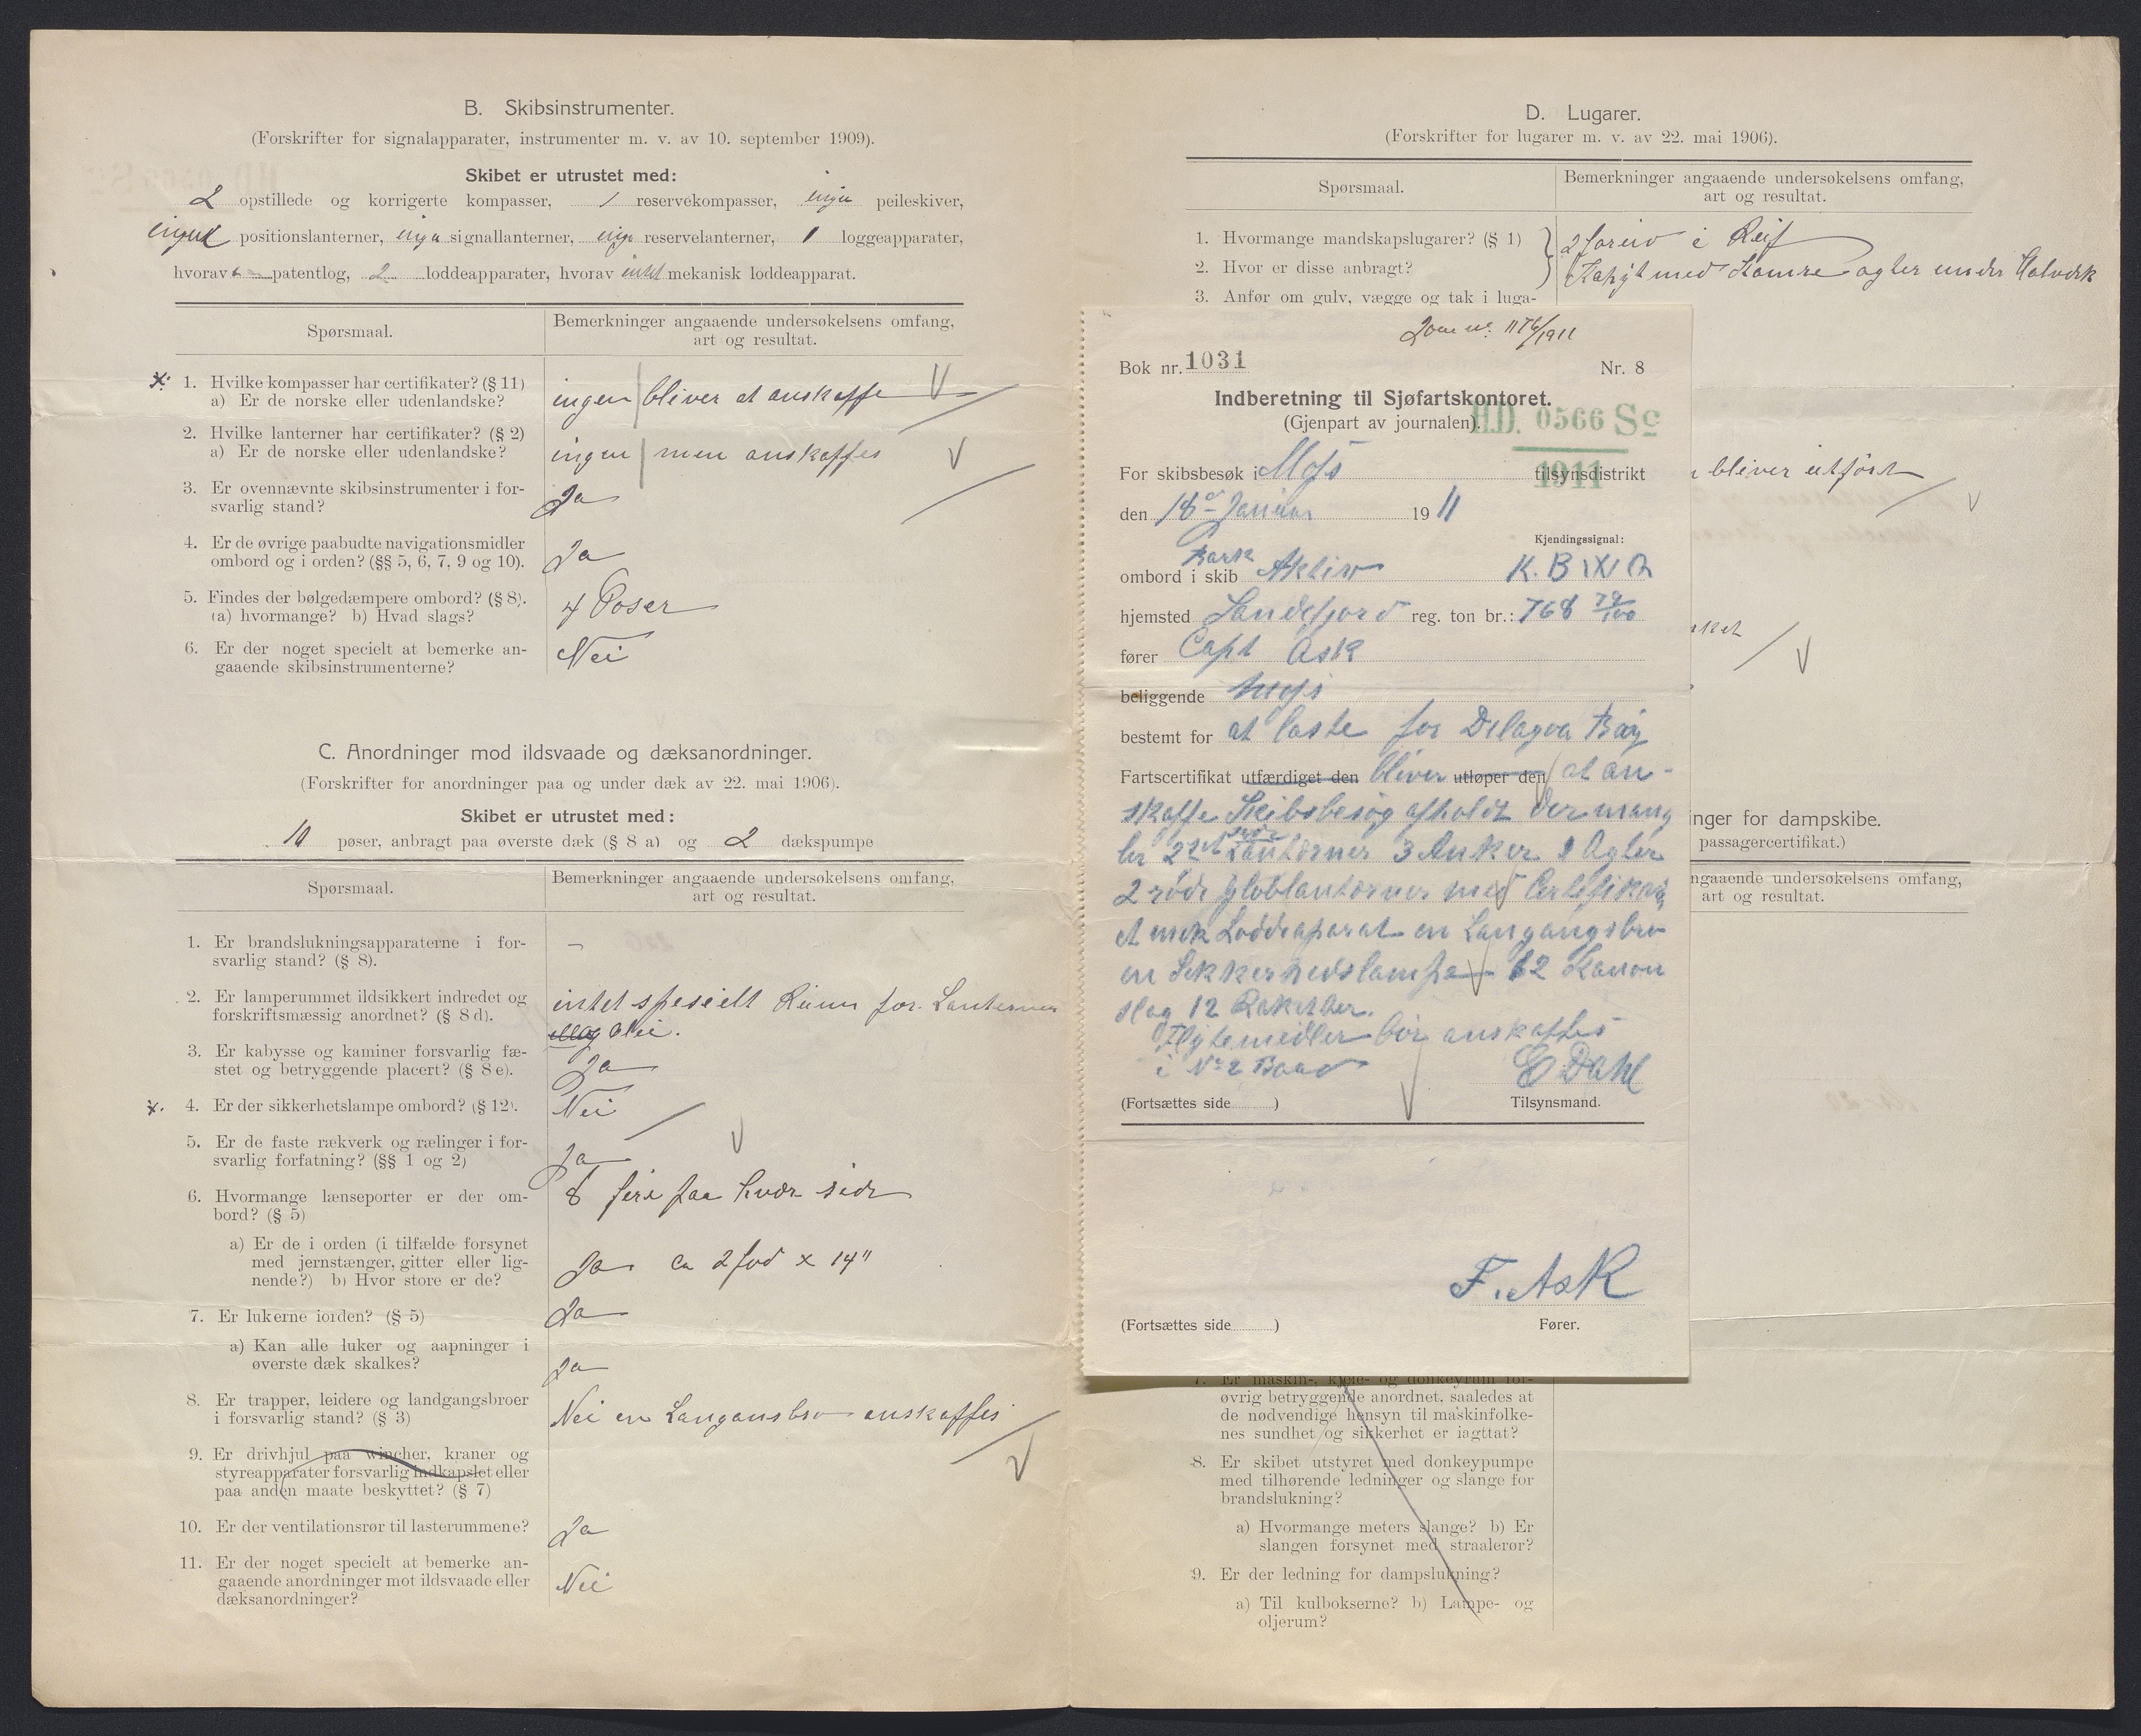 B. Skibsinstrumenter.
(Forskrifter for signalapparater, instrumenter m. v. av 10. september 1909).
Skibet er utrustet med:
2 opstillede og korrigerte kompasser, 1 reservekompasser, ingen peileskiver,
ingen positionslanterner, ingen signallanterner, ingen reservelanterner, 1 loggeapparater,
hvorav patentlog, 2 loddeapparater, hvorav intet mekanisk loddeapparat.
Spørsmaal.
Bemerkninger angaaende undersøkelsens omfang,
art og resultat.
1. Hvilke kompasser har certifikater? (§ 11)
a) Er de norske eller udenlandske?
ingen bliver at anskaffe
2. Hvilke lanterner har certifikater? (§ 2)
a) Er de norske eller udenlandske?
ingen men anskaffes
3. Er ovennævnte skibsinstrumenter i for-
svarlig stand?
Ja
4. Er de øvrige paabudte navigationsmidler
ombord og i orden? (§§ 5, 6, 7, 9 og 10).
Ja
5. Findes der bølgedæmpere ombord? (§ 8).
(a) hvormange? b) Hvad slags?
4 Poser
6. Er der noget specielt at bemerke an-
gaaende skibsinstrumenterne?
Nei
C. Anordninger mod ildsvaade og dæksanordninger.
(Forskrifter for anordninger paa og under dæk av 22. mai 1906).
Skibet er utrustet med:
10 pøser, anbragt paa øverste dæk (§ 8 a) og 2 dækspumpe
Spørsmaal.
Bemerkninger angaaende undersøkelsens omfang,
art og resultat.
1. Er brandslukningsapparaterne i for-
svarlig stand? (§ 8).
—
2. Er lamperummet ildsikkert indredet og
forskriftsmæssig anordnet? (§ 8 d).
intet spesielt Rum for Lanterner
Olie.
3. Er kabysse og kaminer forsvarlig fæ-
stet og betryggende placert? (§ 8 e).
Ja
4. Er der sikkerhetslampe ombord? (§ 12).
Nei
5. Er de faste rækverk og rælinger i for-
svarlig forfatning? (§§ 1 og 2)
Ja
6. Hvormange lænseporter er der om-
bord? (§ 5)
8 fire paa hver side
a) Er de i orden (i tilfælde forsynet
med jernstænger, gitter eller lig-
nende?) b) Hvor store er de?
Ja ca 2 fod x 14"
7. Er lukerne iorden? (§ 5)
Ja
a) Kan alle luker og aapninger i
øverste dæk skalkes?
Ja
8. Er trapper, leidere og landgangsbroer
i forsvarlig stand? (§ 3)
Nei en Langansbro anskaffes
9. Er drivhjul paa wincher, kraner og
styreapparater forsvarlig indkapslet eller
paa anden maate beskyttet? (§ 7)
10. Er der ventilationsrør til lasterummene?
Ja
11. Er der noget specielt at bemerke an-
gaaende anordninger mot ildsvaade eller
dæksanordninger?
Nei
D. Lugarer.
(Forskrifter for lugarer m. v. av 22. mai 1906).
Spørsmaal.
Bemerkninger angaaende undersøkelsens omfang,
art og resultat.
1. Hvormange mandskapslugarer? (§ 1)
2. Hvor er disse anbragt?
2 forerv i Reif
Kahyt med Kamre agter under Halvdæk
3. Anfør om gulv, vægge og tak i luga-
bliver utført
Jour no. 1176/1911
Bok nr. 1031
Nr. 8
Indberetning til Sjøfartskontoret.
(Gjenpart av journalen).
H.D. 0566 Sc
1911
For skibsbesøk i Moss tilsynsdistrikt
den 18de Januar 1911
Kjendingssignal:
Bark
ombord i skib Aktiv
hjemsted Sandefjord reg. ton br.: 768 79/100
fører Capt Ask
beliggende Moss
bestemt for at laste for Delagoa Bay
Fartscertifikat utfærdiget den bliver utløper den at an-
skaffe Skibsbesøg afholdt Der mang
ler 2 set side Lanterner 3 Anker 1 Agter
2 røde globlanterner med Certifikat
et mek Loddeaparat en Langangsbro
en Sekkerhedslampe 12 Kanon
slag 12 Raketter.
Flytemedler bør anskaffes
i No 2 Baad
E Dahl
(Fortsættes side )
Tilsynsmand.
F. Ask
(Fortsættes side )
Fører.
inger for dampskibe.
passagercertifikat.)
ngaaende undersøkelsens omfang,
art og resultat.
7. Er maskin-, kjele- og donkeyrum for-
øvrig betryggende anordnet, saaledes at
de nødvendige hensyn til maskinfolke-
nes sundhet og sikkerhet er iagttat?
8. Er skibet utstyret med donkeypumpe
med tilhørende ledninger og slange for
brandslukning?
a) Hvormange meters slange? b) Er
slangen forsynet med straalerør?
9. Er der ledning for dampslukning?
a) Til kulbokserne? b) Lampe- og
oljerum?